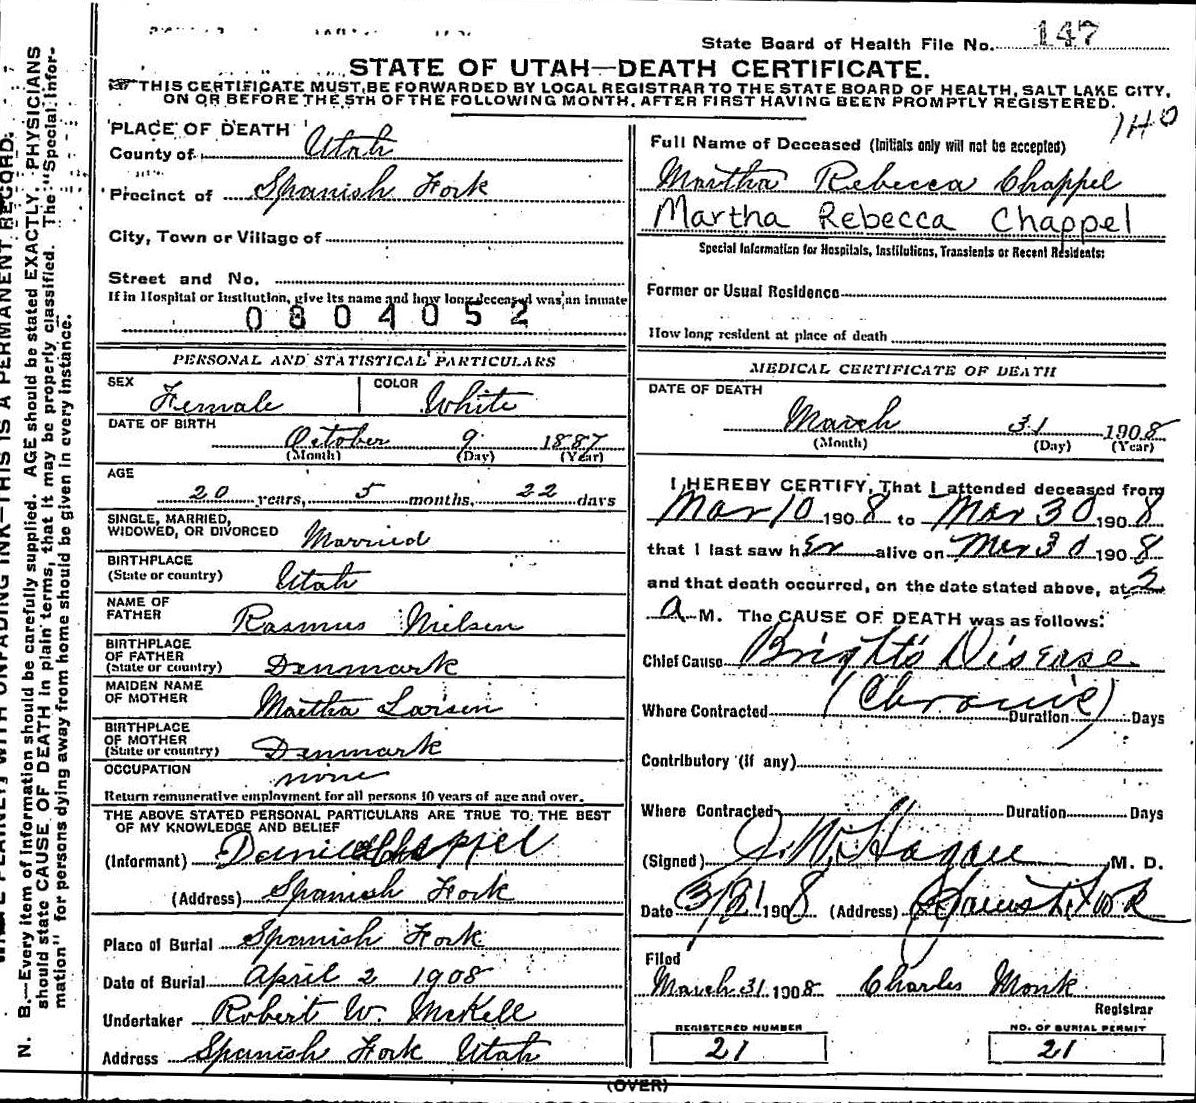 State Board of Health File No. 147
STATE OF UTAH—DEATH CERTIFICATE.
THIS CERTIFICATE MUST BE FORWARDED BY LOCAL REGISTRAR TO THE STATE BOARD OF HEALTH, SALT LAKE CITY,
ON OR BEFORE THE 5TH OF THE FOLLOWING MONTH, AFTER FIRST HAVING BEEN PROMPTLY REGISTERED.
140
PLACE OF DEATH
County of Utah
Precinct of Spanish Fork
City, Town or Village of
Street and No.
If in Hospital or Institution, give its name and how long deceased was an inmate
0804052
PERSONAL AND STATISTICAL PARTICULARS
SEX Female COLOR White
DATE OF BIRTH
October 9 1887
(Month) (Day) (Year)
AGE
20 years, 5 months, 22 days
SINGLE, MARRIED,
WIDOWED, OR DIVORCED Married
BIRTHPLACE
(State or country) Utah
NAME OF
FATHER Rasmus Nielsen
BIRTHPLACE
OF FATHER
(State or country) Denmark
MAIDEN NAME
OF MOTHER Martha Larsen
BIRTHPLACE
OF MOTHER
(State or country) Denmark
OCCUPATION none
Return remunerative employment for all persons 10 years of age and over.
THE ABOVE STATED PERSONAL PARTICULARS ARE TRUE TO THE BEST
OF MY KNOWLEDGE AND BELIEF
(Informant) Chappel
(Address) Spanish Fork
Place of Burial Spanish Fork
Date of Burial April 2 1908
Undertaker Robert W. McKell
Address Spanish Fork Utah
Full Name of Deceased (Initials only will not be accepted)
Martha Rebecca Chappel
Martha Rebecca Chappel
Special Information for Hospitals, Institutions, Transients or Recent Residents:
Former or Usual Residence
How long resident at place of death
MEDICAL CERTIFICATE OF DEATH
DATE OF DEATH
March 31 1908
(Month) (Day) (Year)
I HEREBY CERTIFY, That I attended deceased from
Mar 10 1908 to Mar 30 1908
that I last saw her alive on Mar 30 1908
and that death occurred, on the date stated above, at 2
a M. The CAUSE OF DEATH was as follows:
Chief Cause Bright's Disease
(Chronic)
Where Contracted Duration Days
Contributory (if any)
Where Contracted Duration Days
(Signed) J. W. Hagan M. D.
Date 3/31 1908 (Address) Spanish Fork
Filed
March 31 1908 Charles Monk
Registrar
REGISTERED NUMBER
21
NO. OF BURIAL PERMIT
21
(OVER)
N. B.—Every item of information should be carefully supplied. AGE should be stated EXACTLY. PHYSICIANS
should state CAUSE OF DEATH in plain terms, that it may be properly classified. The "Special Infor-
mation" for persons dying away from home should be given in every instance.
WITH UNFADING INK—THIS IS A PERMANENT RECORD.